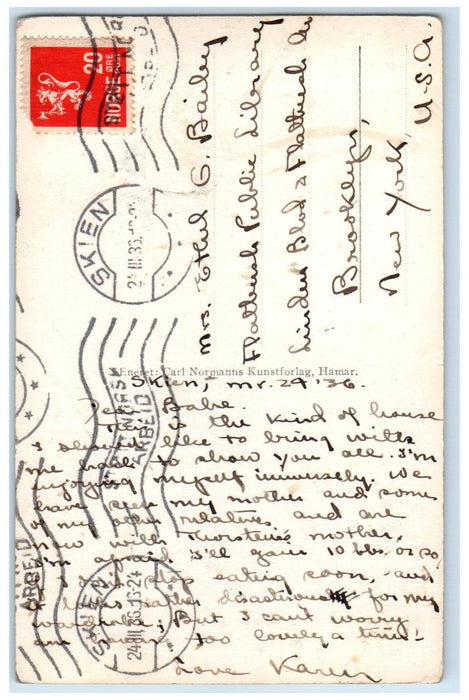 20
NORGE ØRE
SKIEN
24 III 36
Mrs. Ethel G. Bailey
Flatbush Public Library
Linden Blvd & Flatbush Av
Brooklyn,
New York,
U.S.A.
Eneret: Carl Normanns Kunstforlag, Hamar.
Skien, Mr. 24 '36.
Dear Babe.
This is the kind of house
I should like to bring with
me back to show you all. I'm
enjoying myself immensely. We
have seen my mother and some
of my other relatives and are
now with Thorstein's mother.
I'm afraid I'll gain 10 lbs. or so
if I don't stop eating soon, and
rather disastrous for my
wardrobe. But I can't worry
too lovely a time!
Love Karen
STØTT NORSK
ARBEID
SKIEN
24 III 36 13-24
ARBEID